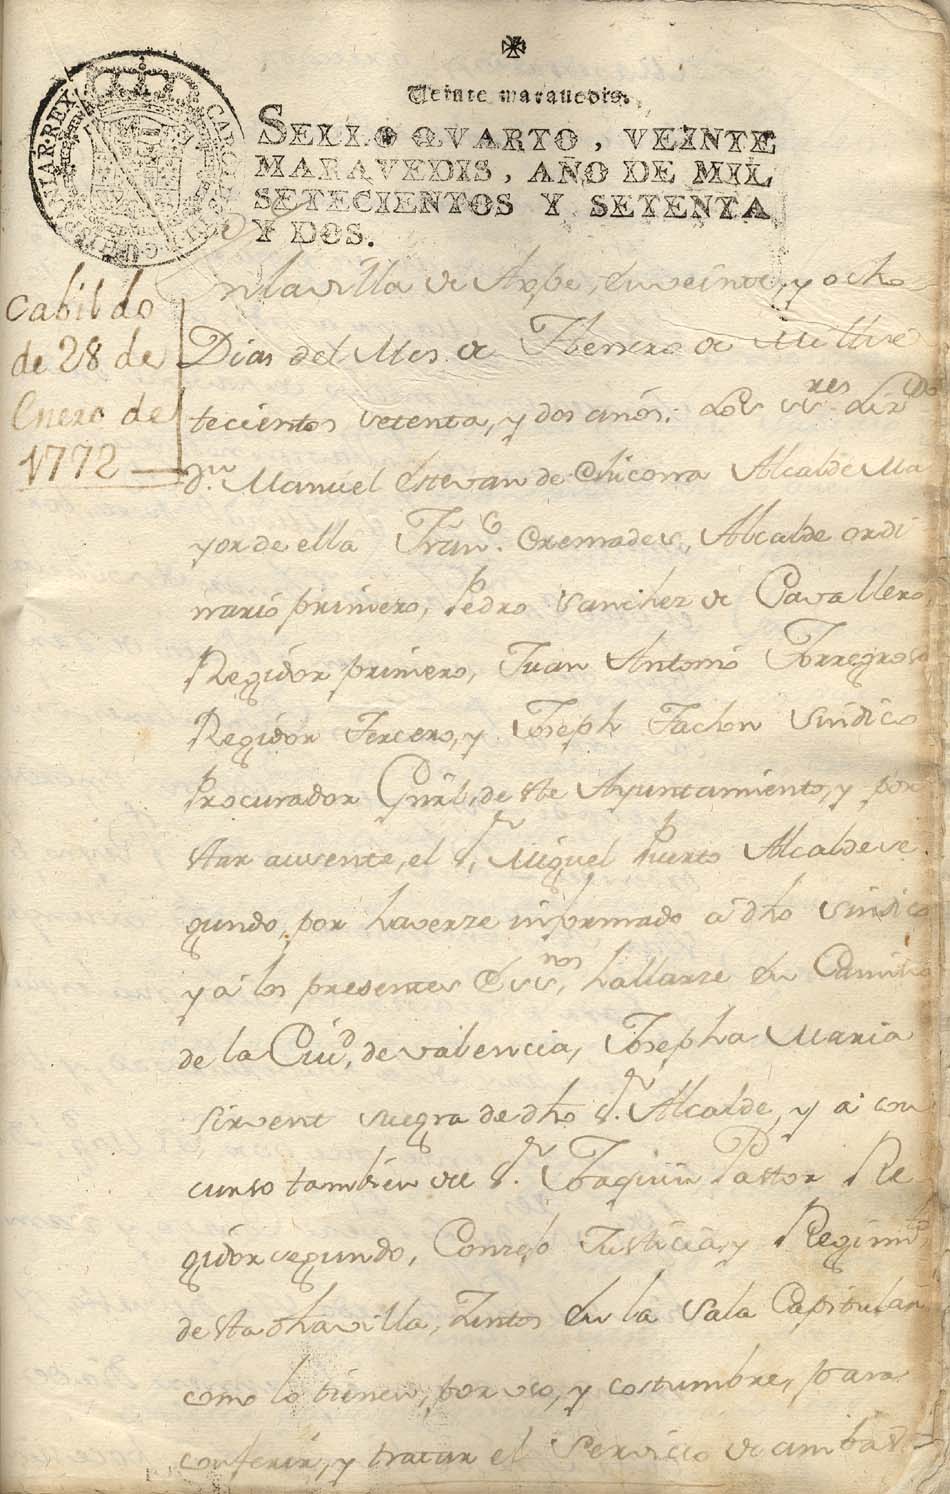 Veinte maravedis.
SELLO QVARTO, VEINTE
MARAVEDIS, AÑO DE MIL
SETECIENTOS Y SETENTA
Y DOS.
Cabildo
de 28 de
Enero de
1772
En la villa de Aspe, en veinte, y ocho
Dias del Mes de Henero de Mil se
tecientos setenta, y dos anós: Los SS.res Liz.do
d.n Manuel Estevan de Chicorra Alcalde Ma
yor de ella Fran.co Cremades, Alcalde ordi
nario primero, Pedro Sanchez de Cavallero,
Regidor primero, Juan Antonio Torregrosa
Regidor Tercero, y Joseph Tachon Sindico
Procurador Gnrl, de ste Ayuntamiento, y por
star auvente, el S.r Miguel Puerto Alcalde se
gundo, por haverze informado a dho Sindico
y a los presentes Ess.nos, hallarze en Camino
de la Ciud, de valencia, Josepha Maria
Sirvent suegra de dho S.r Alcalde, y a con
curso tambien de S.r Joaquin Pastor Re
gidor segundo, Conzejo Justicia, y Regim.to
de sta dha villa, Juntos en la Sala Capitular
como lo tienen, por uso, y costumbre, para
conferir, y tratar el Servicio de ambas